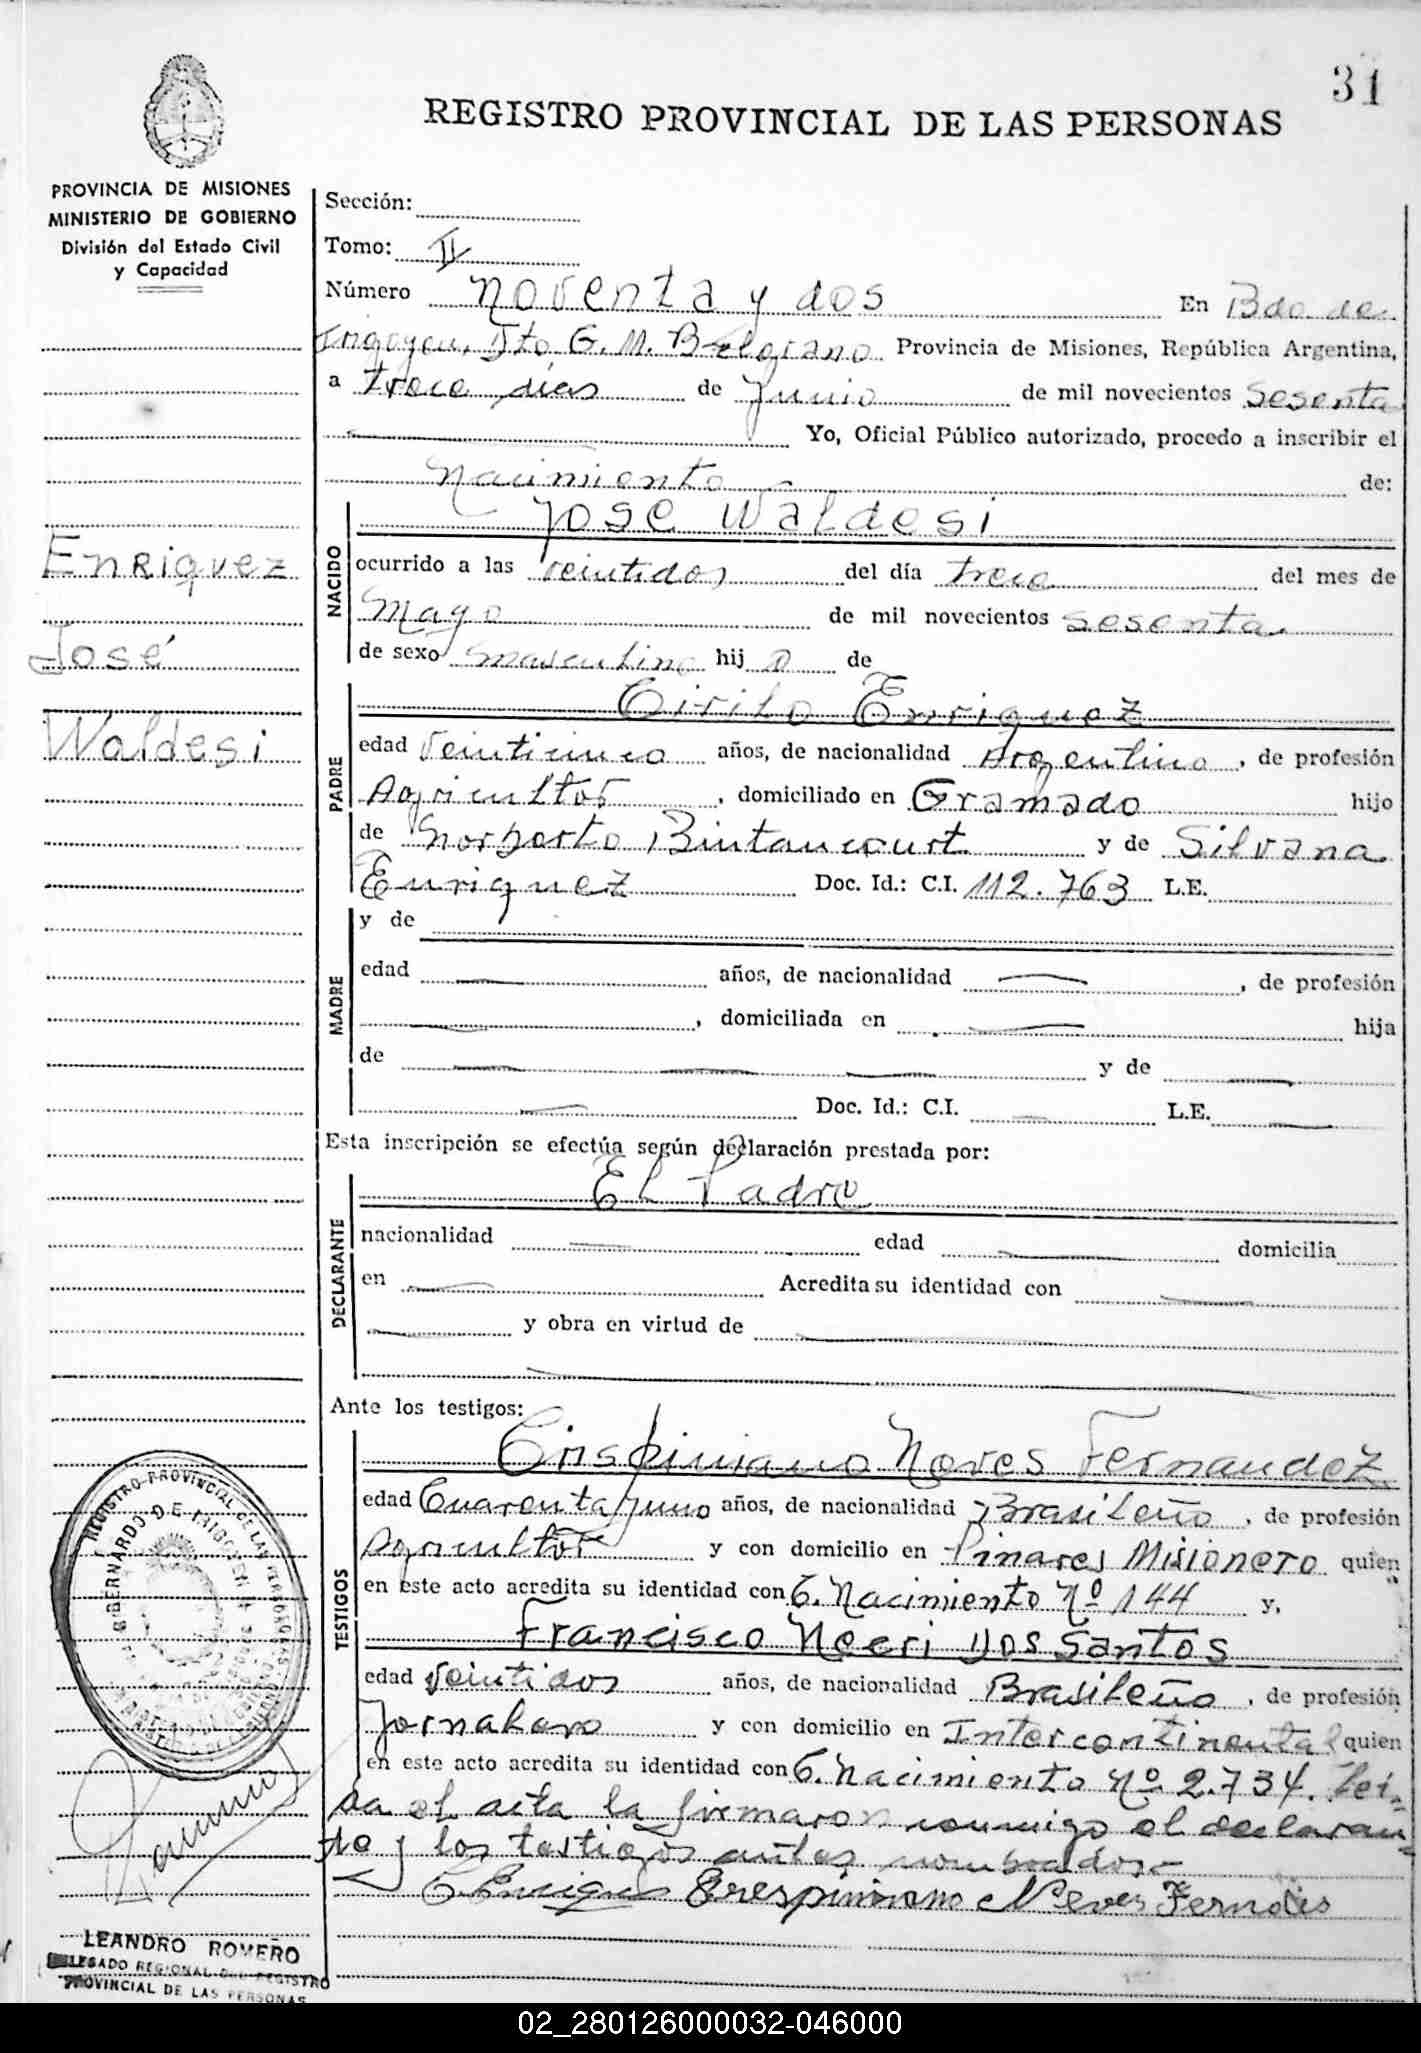 31
REGISTRO PROVINCIAL DE LAS PERSONAS
PROVINCIA DE MISIONES
MINISTERIO DE GOBIERNO
División del Estado Civil
y Capacidad
Enriquez
José
Waldesi
Sección:
Tomo: II
Número noventa y dos En Bdo. de
Irigoyen, Dto G. M. Belgrano Provincia de Misiones, República Argentina,
a trece días de Junio de mil novecientos Sesenta
Yo, Oficial Público autorizado, procedo a inscribir el
Nacimiento de:
NACIDO
José Waldesi
ocurrido a las veintidos del día trece del mes de
Mayo de mil novecientos sesenta
de sexo masculino hij o de
PADRE
Cirilo Enriquez
edad veinticinco años, de nacionalidad Argentino, de profesión
Agricultor, domiciliado en Gramado hijo
de Norberto Bintancourt y de Silvana
Enriquez Doc. Id.: C.I. 112.763 L.E.
MADRE
y de
edad años, de nacionalidad , de profesión
, domiciliada en hija
de y de
Doc. Id.: C.I. L.E.
Esta inscripción se efectúa según declaración prestada por:
DECLARANTE
El Padre
nacionalidad edad domicilia
en Acredita su identidad con
y obra en virtud de
Ante los testigos:
TESTIGOS
Crispiniano Neves Fernandez
edad Cuarenta y uno años, de nacionalidad Brasileño, de profesión
Agricultor y con domicilio en Pinares Misionero quien
en este acto acredita su identidad con C. Nacimiento Nº 144 y,
Francisco Neeri Dos Santos
edad veintidos años, de nacionalidad Brasileño, de profesión
Jornalero y con domicilio en Intercontinental quien
en este acto acredita su identidad con C. Nacimiento Nº 2.734. Lei-
da el acta la firmaron conmigo el declaran-
te y los testigos antes nombrados.-
C. Enriquez Crespiniano Neves Fernandis
REGISTRO PROVINCIAL DE LAS PERSONAS
BERNARDO DE IRIGOYEN
LEANDRO ROMERO
DELEGADO REGIONAL DEL REGISTRO
PROVINCIAL DE LAS PERSONAS
02_280126000032-046000